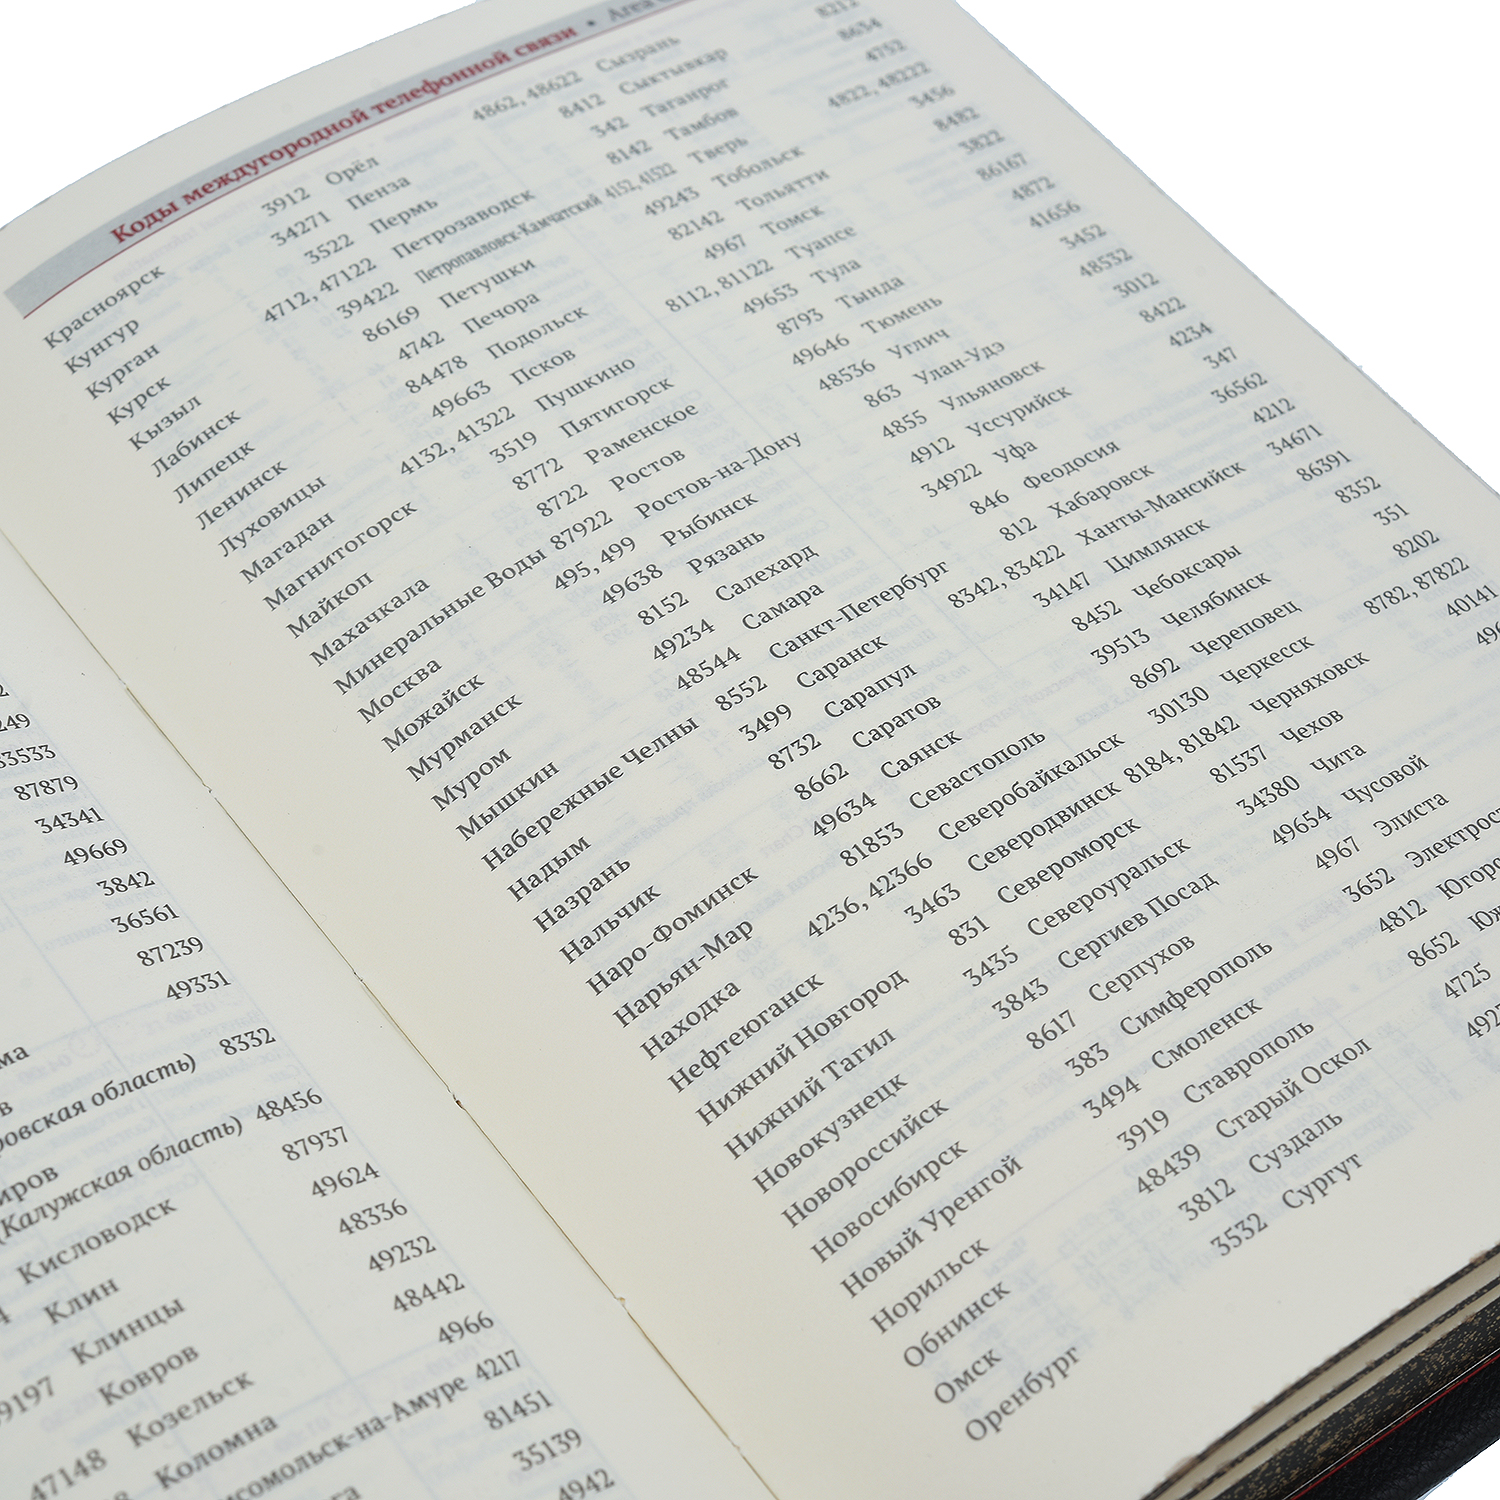 249
33533
87879
34341
49669
3842
36561
87239
49331
8332
(Калужская область) 48456
Кисловодск 87937
Клин 49624
Клинцы 48336
Ковров 49232
Козельск 48442
47148 Коломна 4966
4217
81451
35139
4942
Коды междугородной телефонной связи •
Красноярск 3912
Кунгур 34271
Курган 3522
Курск 4712, 47122
Кызыл 39422
Лабинск 86169
Липецк 4742
Ленинск 84478
Луховицы 49663
Магадан 4132, 41322
Магнитогорск 3519
Майкоп 8772
Махачкала 8722
Минеральные Воды 87922
Москва 495, 499
Можайск 49638
Мурманск 8152
Муром 49234
Мышкин 48544
Набережные Челны 8552
Надым 3499
Назрань 8732
Нальчик 8662
Наро-Фоминск 49634
Нарьян-Мар 81853
Находка 4236, 42366
Нефтеюганск 3463
Нижний Новгород 831
Нижний Тагил 3435
Новокузнецк 3843
Новороссийск 8617
Новосибирск 383
Новый Уренгой 3494
Норильск 3919
Обнинск 48439
Омск 3812
Оренбург 3532
Орёл 4862, 48622
Пенза 8412
Пермь 342
Петрозаводск 8142
Петропавловск-Камчатский 4152, 41522
Петушки 49243
Печора 82142
Подольск 4967
Псков 8112, 81122
Пушкино 49653
Пятигорск 8793
Раменское 49646
Ростов 48536
Ростов-на-Дону 863
Рыбинск 4855
Рязань 4912
Салехард 34922
Самара 846
Санкт-Петербург 812
Саранск 8342, 83422
Сарапул 34147
Саратов 8452
Саянск 39513
Севастополь 8692
Северобайкальск 30130
Северодвинск 8184, 81842
Североморск 81537
Североуральск 34380
Сергиев Посад 49654
Серпухов 4967
Симферополь 3652
Смоленск 4812
Ставрополь 8652
Старый Оскол 4725
Суздаль
Сургут
Сызрань
Сыктывкар 8212
Таганрог 8634
Тамбов 4752
Тверь 4822, 48222
Тобольск 3456
Тольятти 8482
Томск 3822
Туапсе 86167
Тула 4872
Тында 41656
Тюмень 3452
Углич 48532
Улан-Удэ 3012
Ульяновск 8422
Уссурийск 4234
Уфа 347
Феодосия 36562
Хабаровск 4212
Ханты-Мансийск 34671
Цимлянск 86391
Чебоксары 8352
Челябинск 351
Череповец 8202
Черкесск 8782, 87822
Черняховск 40141
Чехов
Чита
Чусовой
Элиста